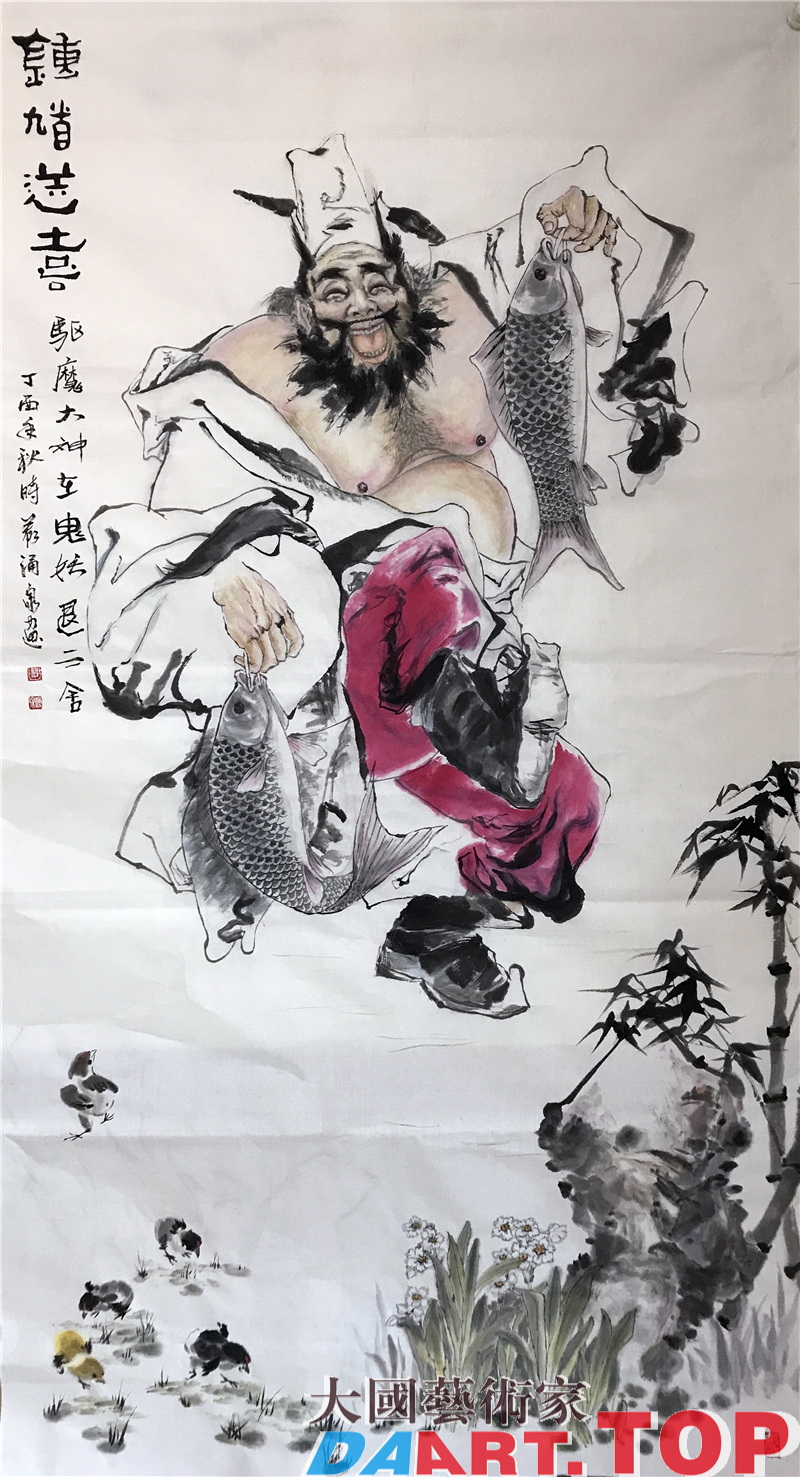 鍾馗送喜
驱魔大神在鬼妖退二舍
丁酉年秋時涌泉画
大國藝術家
DAART.TOP